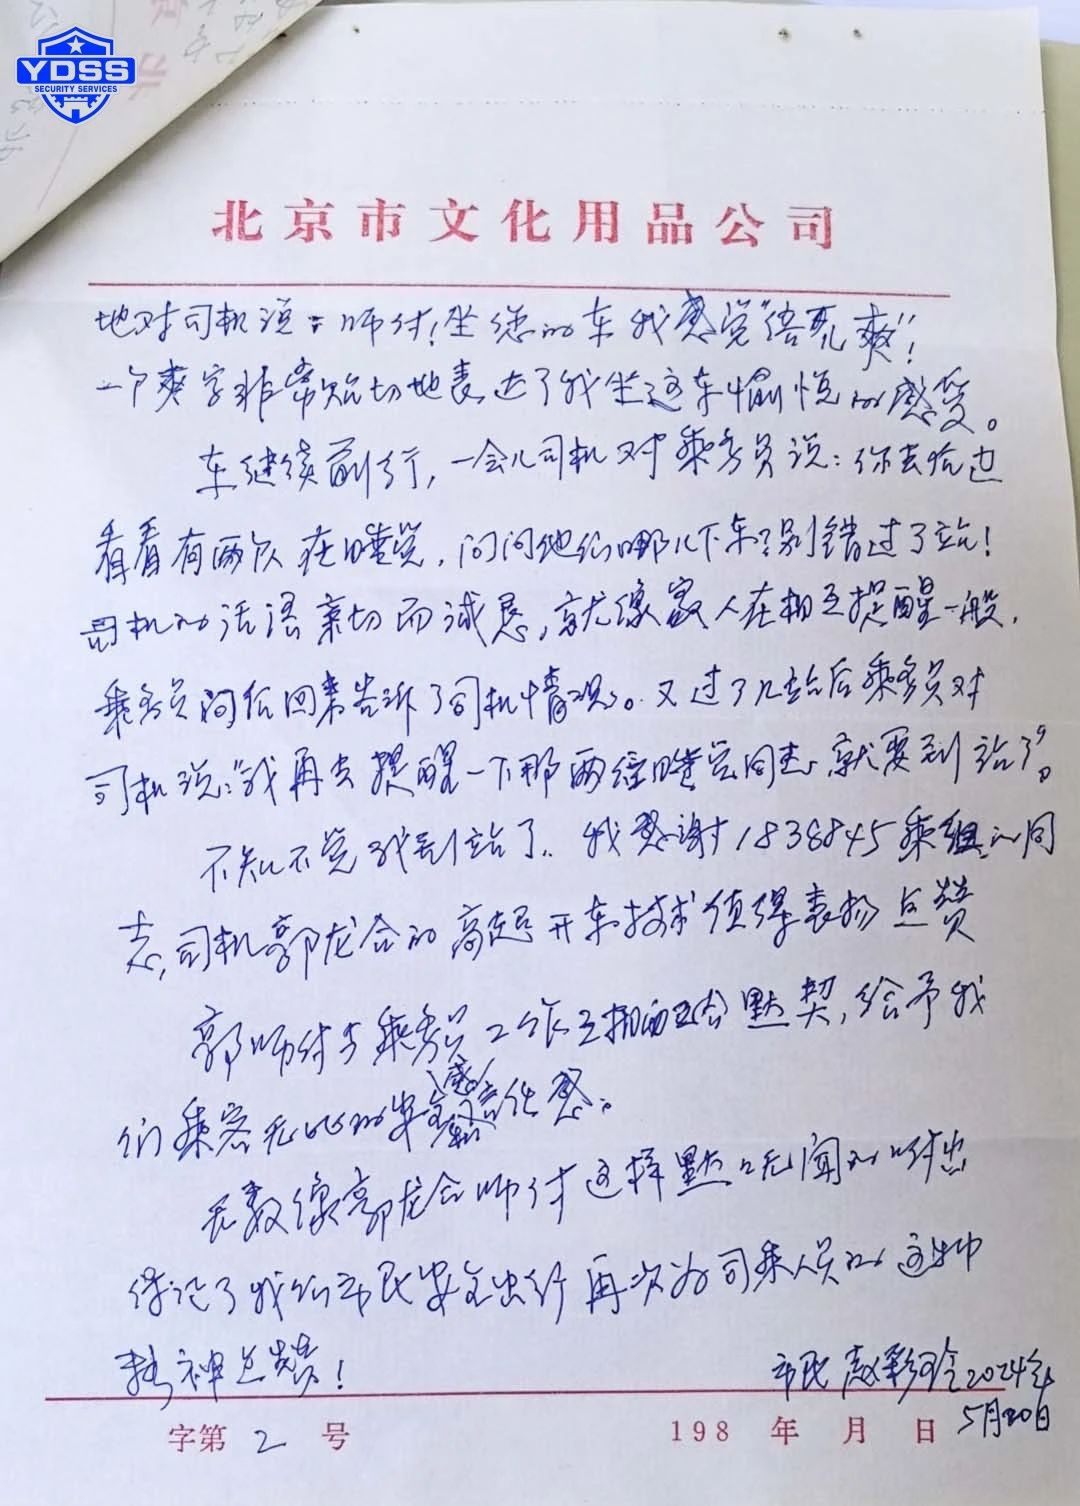 YDSS
SECURITY SERVICES
北京市文化用品公司
地对司机说：师付！坐您的车我感觉“倍儿爽”！
一个爽字非常贴切地表达了我坐这车愉悦的感受。
车继续前行，一会儿司机对乘务员说：你去后边
看看有两个人在睡觉，问问他们哪儿下车？别错过了站！
司机的话语亲切而诚恳，就像家人在相互提醒一般，
乘务员问后回来告诉了司机情况。又过了几站后乘务员对
司机说：“我再去提醒一下那两位睡觉同志，就要到站了”。
不知不觉我到站了。我感谢1838845乘组的同
志，司机郭龙合的高超开车技术值得表扬点赞
郭师付与乘务员工作互相配合默契，给予我
们乘客无比的安全感信任感。
无数像郭龙合师付这样默默无闻的付出
保证了我们市民安全出行 再次为司乘人员的这种
精神点赞！
市民 赵彩玲 2024年
5月20日
字第2号
198 年 月 日